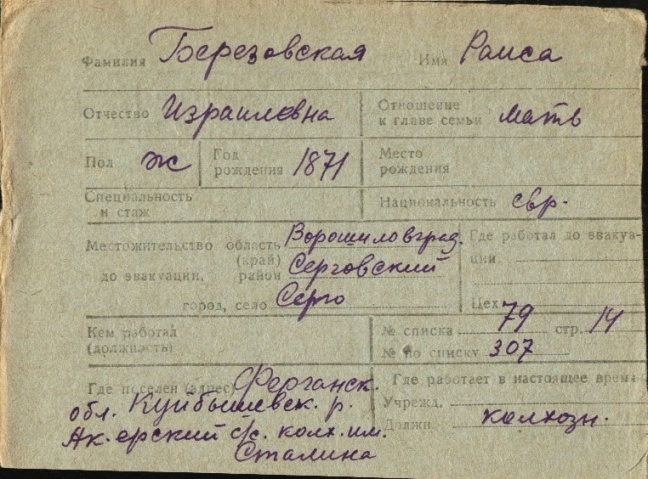 Фамилия Березовская Имя Раиса
Отчество Израилевна Отношение к главе семьи мать
Пол ж Год рождения 1871 Место рождения
Специальность и стаж Национальность евр.
Местожительство до эвакуации. область (край) Ворошиловград.
район Серговский
город, село Серго
Где работал до эвакуации.
Цех
Кем работал (должность)
№ списка 79 стр. 14
№ по списку 307
Где поселен (адрес) Ферганск.
обл. Куйбышевск. р.
с/с. колх. им.
Сталина
Где работает в настоящее время
Учрежд.
Должн. колхозн.